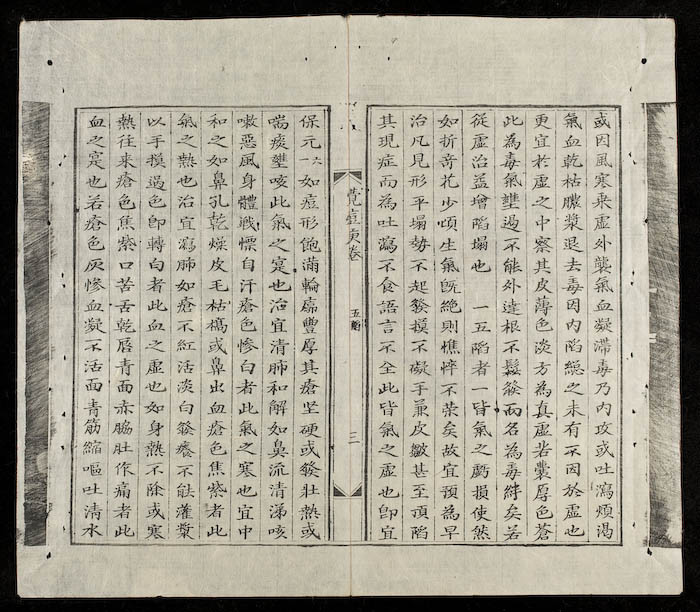 或因風寒乘虛外襲氣血凝滯毒乃內攻或吐瀉煩渴
氣血乾枯膿漿退去毒因內陷總之未有不因於虛也
更宜於虛之中察其皮薄色淡方為真虛若囊厚色蒼
此為毒氣壅遏不能外達根不鬆發而名為毒綍矣若
從虛治益增陷塌也 一五陷者一皆氣之虧損使然
如折奇花少頃生氣旣絕則憔悴不荣矣故宜預為早
治凡見形平塌勢不起發摸不礙手兼皮皺甚至頂陷
其現症而為吐瀉不食語言不全此皆氣之虛也即宜
卷
五陷
三
保元一六如痘形飽滿輪廓豐厚其瘡坚硬或發壯熱或
喘痰壅咳此氣之寔也治宜清肺和解如鼻流清涕咳
嗽惡風身體戰慄自汗瘡色慘白者此氣之寒也宜中
和之如鼻孔乾燥皮毛枯槁或鼻出血瘡色焦紫者此
氣之熱也治宜瀉肺如瘡不紅活淡白發癢不能灌漿
以手摸過色即轉白者此血之虛也如身熱不除或寒
熱往來瘡色焦紫口苦舌乾唇青面赤腸肚作痛者此
血之寔也若瘡色灰慘血凝不活面青筋縮嘔吐清水